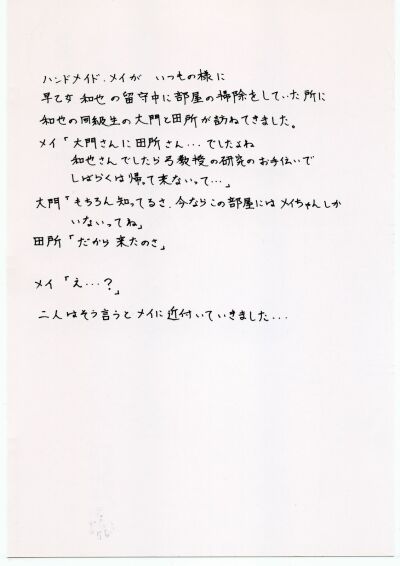 ハンドメイド・メイが いつもの様に
早乙女 和也の留守中に部屋の掃除をしていた所に
和也の同級生の大門と田所が訪ねてきました。
メイ「大門さんに田所さん・・・でしたよね
和也さんでしたら弓教授の研究のお手伝いで
しばらくは帰って来ないって・・・」
大門「もちろん知ってるさ、今ならこの部屋にはメイちゃんしか
いないってね」
田所「だから来たのさ」
メイ「え・・・?」
二人はそう言うとメイに近付いていきました・・・